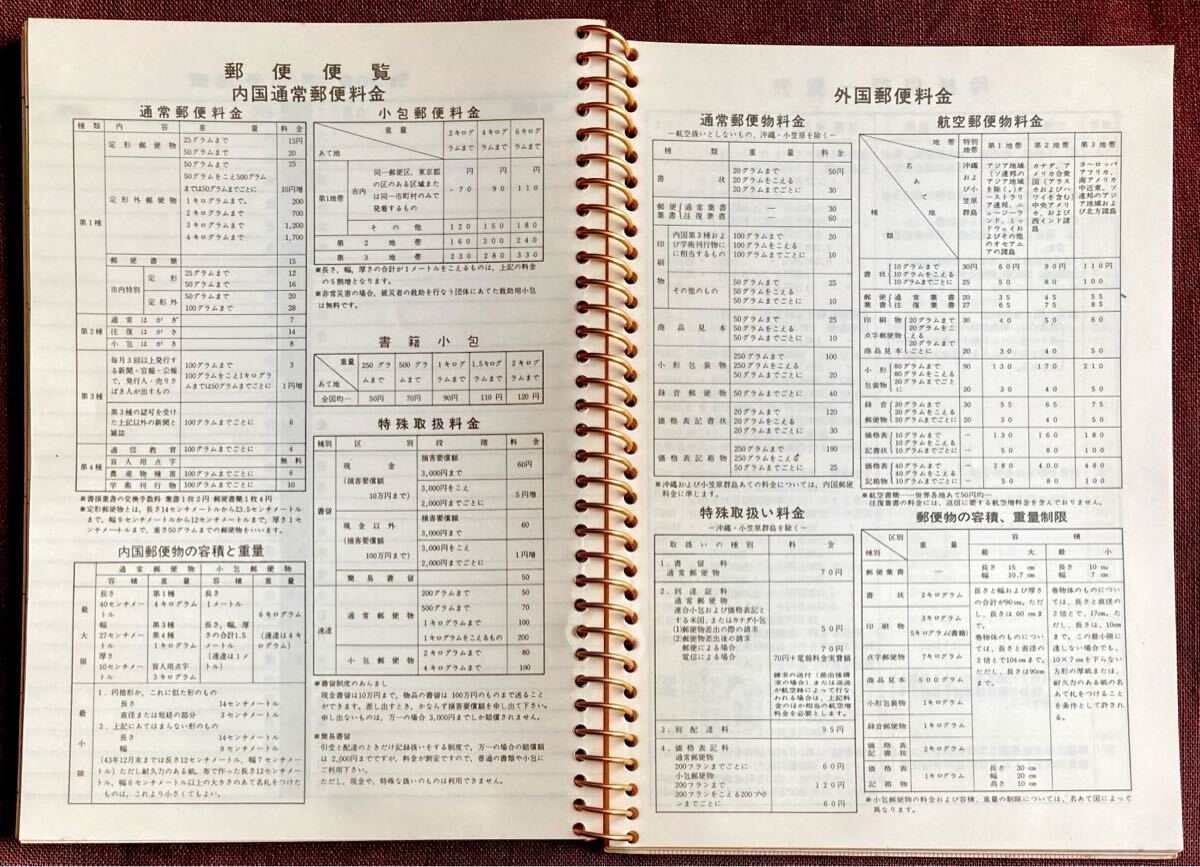 郵便便覧
内国通常郵便料金
通常郵便料金
種類 内容 重量 料金
第1種 定形郵便物 25グラムまで 15円
50グラムまで 20
定形外郵便物 50グラムまで 25
50グラムをこえ500グラム
までは50グラムまでごとに 10円増
1キログラムまで。 200
2キログラムまで 700
3キログラムまで 1,200
4キログラムまで 1,700
郵便書簡 15
市内特別 定形 25グラムまで 12
50グラムまで 16
定形外 50グラムまで 20
100グラムまで 28
第2種 通常はがき 7
往復はがき 14
小包はがき 8
第3種 毎月3回以上発行す
る新聞・官報・公報
で、発行人・売りさ
ばき人が出すもの
100グラムまで 3
100グラムをこえ1キログラ
ムまでは50グラムまでごとに 1円増
第3種の認可を受け
た上記以外の新聞と
雑誌
100グラムまでごとに 6
第4種 通信教育 100グラムまでごとに 4
盲人用点字 無料
農産物種苗 100グラムまでごとに 6
学術刊行物 100グラムまでごとに 10
※書損葉書の交換手数料 葉書1枚2円 郵便書簡1枚4円
※定形郵便物とは、長さ14センチメートルから23.5センチメートル
まで、幅9センチメートルから12センチメートルまで、厚さ1セ
ンチメートルまで、重さ50グラムまでの郵便をいいます。
内国郵便物の容積と重量
通常郵便物 小包郵便物
容積 重量 容積 重量
最大限
長さ
40センチメー
トル
幅
27センチメー
トル
厚さ
10センチメー
トル
第1種
4キログラム
第3種
第4種
1キログラム
盲人用点字
3キログラム
長さ
1メートル
長さ、幅、厚
さの合計1.5
メートル
(速達は1メ
ートル)
6キログラム
(速達は4キ
ログラム)
最小限
1. 円筒形か、これに似た形のもの
長さ 14センチメートル
直径または短径の部分 3センチメートル
2. 上記にあてはまらない形のもの
長さ 14センチメートル
幅 9センチメートル
(43年12月末までは長さ12センチメートル、幅7センチメー
トル)ただし耐久力のある紙、布で作った長さ12センチメー
トル、幅6センチメートル以上の大きさのあて名札をつけた
ものは、これより小さくてもよい。
小包郵便料金
重量 あて地 2キログラムまで 4キログラムまで 6キログラムまで
第1地帯 市内
同一郵便区、東京都
の区のある区域また
は同一市町村のみで
発着するもの
円 70 円 90 円 110
その他 120 150 180
第2地帯 160 200 240
第3地帯 230 280 330
※長さ、幅、厚さの合計が1メートルをこえるものは、上記の料金
の5割増となります。
※非常災害の場合、被災者の救助を行なう団体にあてた救助用小包
は無料です。
書籍小包
重量 あて地 250グラムまで 500グラムまで 1キログラムまで 1.5キログラムまで 2キログラムまで
全国均一 50円 70円 90円 110円 120円
特殊取扱料金
種別 区別 段階 料金
書留 現金
(損害要償額
10万円まで)
損害要償額
3,000円まで 60円
3,000円をこえ
2,000円までごとに 5円増
現金以外
(損害要償額
100万円まで)
損害要償額
3,000円まで 60
3,000円をこえ
2,000円までごとに 1円増
簡易書留 50
速達 通常郵便物 200グラムまで 50
500グラムまで 70
1キログラムまで 100
1キログラムをこえるもの 200
小包郵便物 2キログラムまで 80
4キログラムまで 100
※書留制度のあらまし
現金書留は10万円まで、物品の書留は100万円のものまで送ること
ができます。差し出すとき、かならず損害要償額を申し出て下さい。
申し出ないものは、万一の場合3,000円までしか賠償されません。
※簡易書留
引受と配達のときだけ記録扱いをする制度で、万一の場合の賠償額
は2,000円までですが、料金が割安ですので、普通の書類や小包に
ご利用下さい。
ただし、現金や、特殊な扱いのものは利用できません。
外国郵便料金
通常郵便物料金
─航空扱いとしないもの、沖縄・小笠原を除く─
種類 重量 料金
書状 20グラムまで 50円
20グラムをこえる
20グラムまでごとに 30
郵便葉書 通常葉書 ─ 30
往復葉書 ─ 60
印刷物 内国第3種および学術刊行物に相当するもの
100グラムまで 20
100グラムをこえる
100グラムまでごとに 10
その他のもの 50グラムまで 25
50グラムをこえる
50グラムまでごとに 10
商品見本 50グラムまで 25
50グラムをこえる
50グラムまでごとに 10
小形包装物 250グラムまで 100
250グラムをこえる
50グラムまでごとに 20
録音郵便物 50グラムまでごとに 40
価格表記書状 20グラムまで 120
20グラムをこえる
20グラムまでごとに 30
価格表記箱物 250グラムまで 190
250グラムをこえる
50グラムまでごとに 25
※沖縄および小笠原群島あての料金については、内国郵便
料金に準じます。
特殊取扱い料金
─沖縄・小笠原群島を除く─
取扱いの種別 料金
1. 書留料
通常郵便物 70円
2. 到達証料
通常郵便物
連合小包および価格表記と
する米国、またはカナダ小包
(1)郵便物差出の際の請求 50円
(2)郵便物差出後の請求
郵便による場合 70円
電信による場合 70円+電報料金実費額
請求の送付(差出後請
求の場合)または返送
が航空路によって行な
われる場合は、上記料
金のほか相当の航空増
料金を必要とします。
3. 別配達料 95円
4. 価格表記料
通常郵便物
200フランまでごとに 60円
小包郵便物
200フランまで 120円
200フランをこえる200フラ
ンまでごとに 60円
航空郵便物料金
地帯 あて名地 種類 特別地帯 第1地帯 第2地帯 第3地帯
沖縄および小笠原群島
アジア地域
(ソ連邦の
アジア地域
を除く。)オ
ーストラリ
ア連邦、ニ
ュージーラ
ンド、ミッ
ドウェイお
よびその他
のオセアニ
アの諸島
カナダ、ア
メリカ合衆
国(アラス
カおよびハ
ワイを含む)
中央アメリ
カ、および
西インド諸
島
ヨーロッパ
アフリカ、
南アメリカ
中近東、ソ
連邦のアジ
ア地域およ
び北方諸島
書状 10グラムまで 30円 60円 90円 110円
10グラムをこえる
10グラムまでごとに 50 80 100
郵便葉書 通常葉書 20 35 45 55
往復葉書 27 65 75 85
印刷物 点字郵便物 商品見本
20グラムまで 30 40 50 60
20グラムをこえる
20グラムまでごとに 20 30 40 50
小形包装物 80グラムまで 90 130 170 210
80グラムをこえる
20グラムまでごとに 20 30 40 50
録音郵便物 20グラムまで 30 55 65 75
20グラムをこえる
20グラムまでごとに 20 30 40 50
価格表記書状 10グラムまで ─ 130 160 180
10グラムをこえる
10グラムまでごとに ─ 50 80 100
価格表記箱物 40グラムまで ─ 280 400 480
40グラムをこえる
10グラムまでごとに ─ 50 80 100
※航空書簡……世界各地あて50円均一
往復葉書の料金には、返信に要する航空増料金を含んでおりません。
郵便物の容積、重量制限
区別 種別 重量 容積
最大 最小
郵便葉書 ─ 長さ 15cm
幅 10.7cm
長さ 10cm
幅 7cm
書状 2キログラム
印刷物 3キログラム
5キログラム(書籍)
点字郵便物 7キログラム
商品見本 500グラム
小形包装物 1キログラム
録音郵便物 1キログラム
価格表記書状 2キログラム
長さと幅および厚さ
の合計が90cm。ただ
し、長さは60cmま
で。
巻物体のものについ
ては、長さと直径の
2倍とで104cmまで。
ただし、長さは90cm
まで。
巻物体のものについ
ては、長さと直径の
2倍とで、17cm。た
だし、長さは、10cm
まで。この最小限に
達しない場合でも、
10×7cmを下らない
方形の厚紙または、
耐久力のある紙のあ
て名札をつけること
を条件として許され
る。
価格表記箱物 1キログラム
長さ 30cm
幅 20cm
高さ 10cm
※小包郵便物の料金および容積、重量の制限については、名あて国によって
異なります。